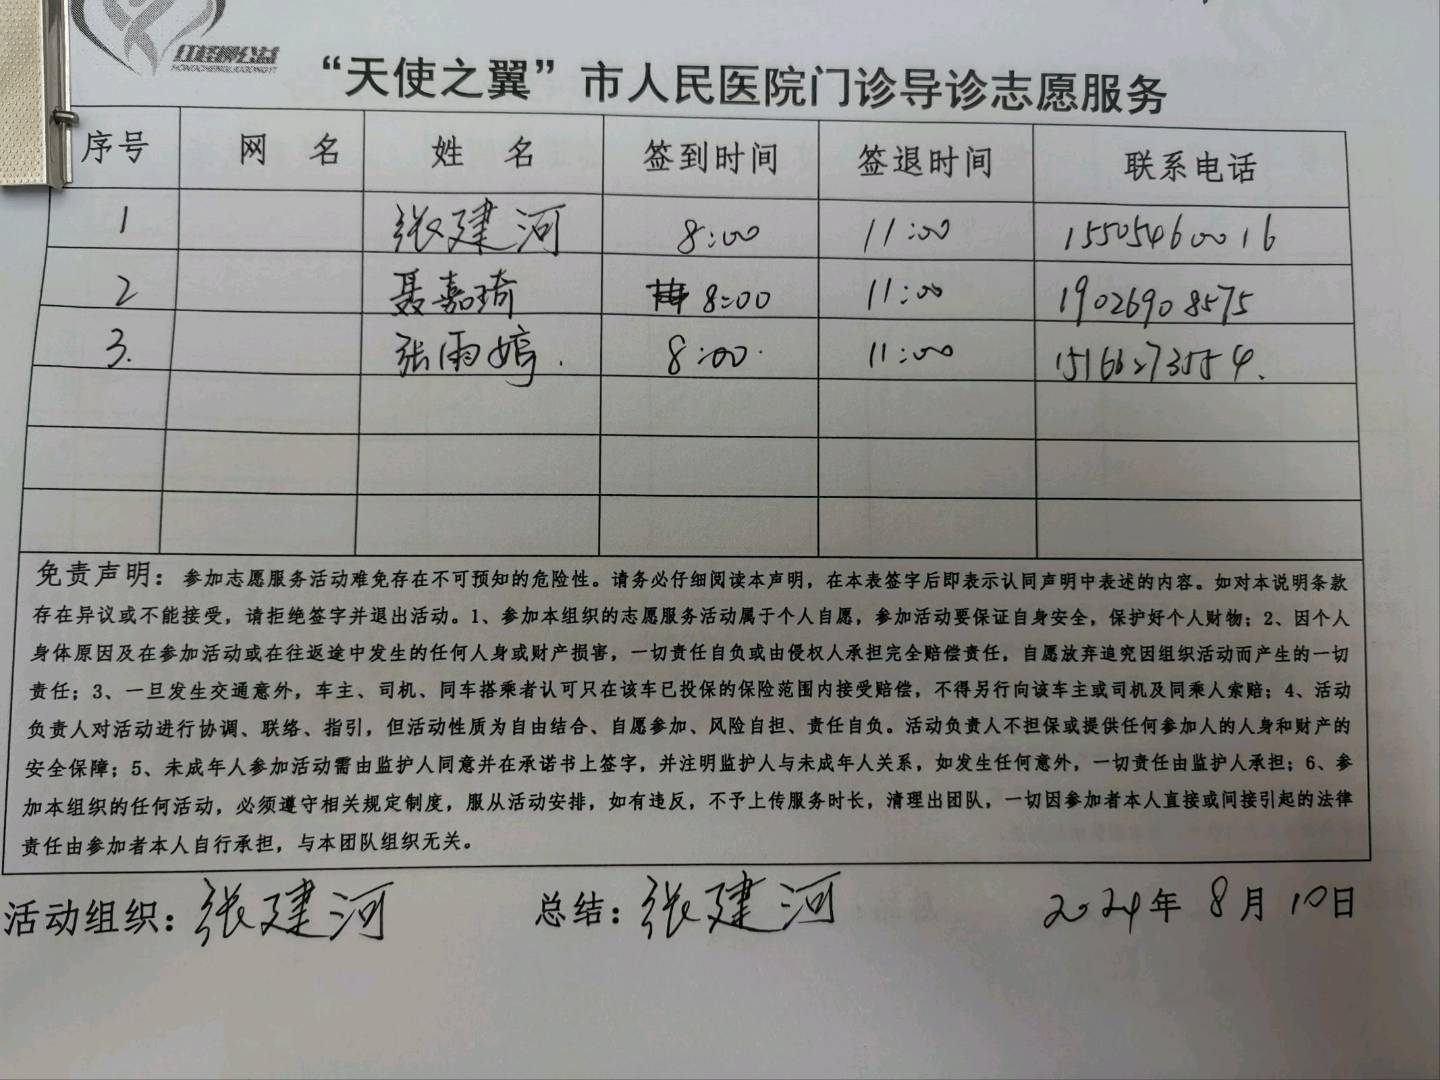 红柽柳公益
“天使之翼”市人民医院门诊导诊志愿服务
序号 网 名 姓 名 签到时间 签退时间 联系电话
1 张建河 8:00 11:00 15505460016
2 聂嘉琦 8:00 11:00 19026908575
3. 张雨婷. 8:00 11:00 15166273554.
免责声明：参加志愿服务活动难免存在不可预知的危险性。请务必仔细阅读本声明，在本表签字后即表示认同声明中表述的内容。如对本说明条款
存在异议或不能接受，请拒绝签字并退出活动。1、参加本组织的志愿服务活动属于个人自愿，参加活动要保证自身安全，保护好个人财物；2、因个人
身体原因及在参加活动或在往返途中发生的任何人身或财产损害，一切责任自负或由侵权人承担完全赔偿责任，自愿放弃追究因组织活动而产生的一切
责任；3、一旦发生交通意外，车主、司机、同车搭乘者认可只在该车已投保的保险范围内接受赔偿，不得另行向该车主或司机及同乘人索赔；4、活动
负责人对活动进行协调、联络、指引，但活动性质为自由结合、自愿参加、风险自担、责任自负。活动负责人不担保或提供任何参加人的人身和财产的
安全保障；5、未成年人参加活动需由监护人同意并在承诺书上签字，并注明监护人与未成年人关系，如发生任何意外，一切责任由监护人承担；6、参
加本组织的任何活动，必须遵守相关规定制度，服从活动安排，如有违反，不予上传服务时长，清理出团队，一切因参加者本人直接或间接引起的法律
责任由参加者本人自行承担，与本团队组织无关。
活动组织：张建河 总结：张建河 2024年 8月 10日